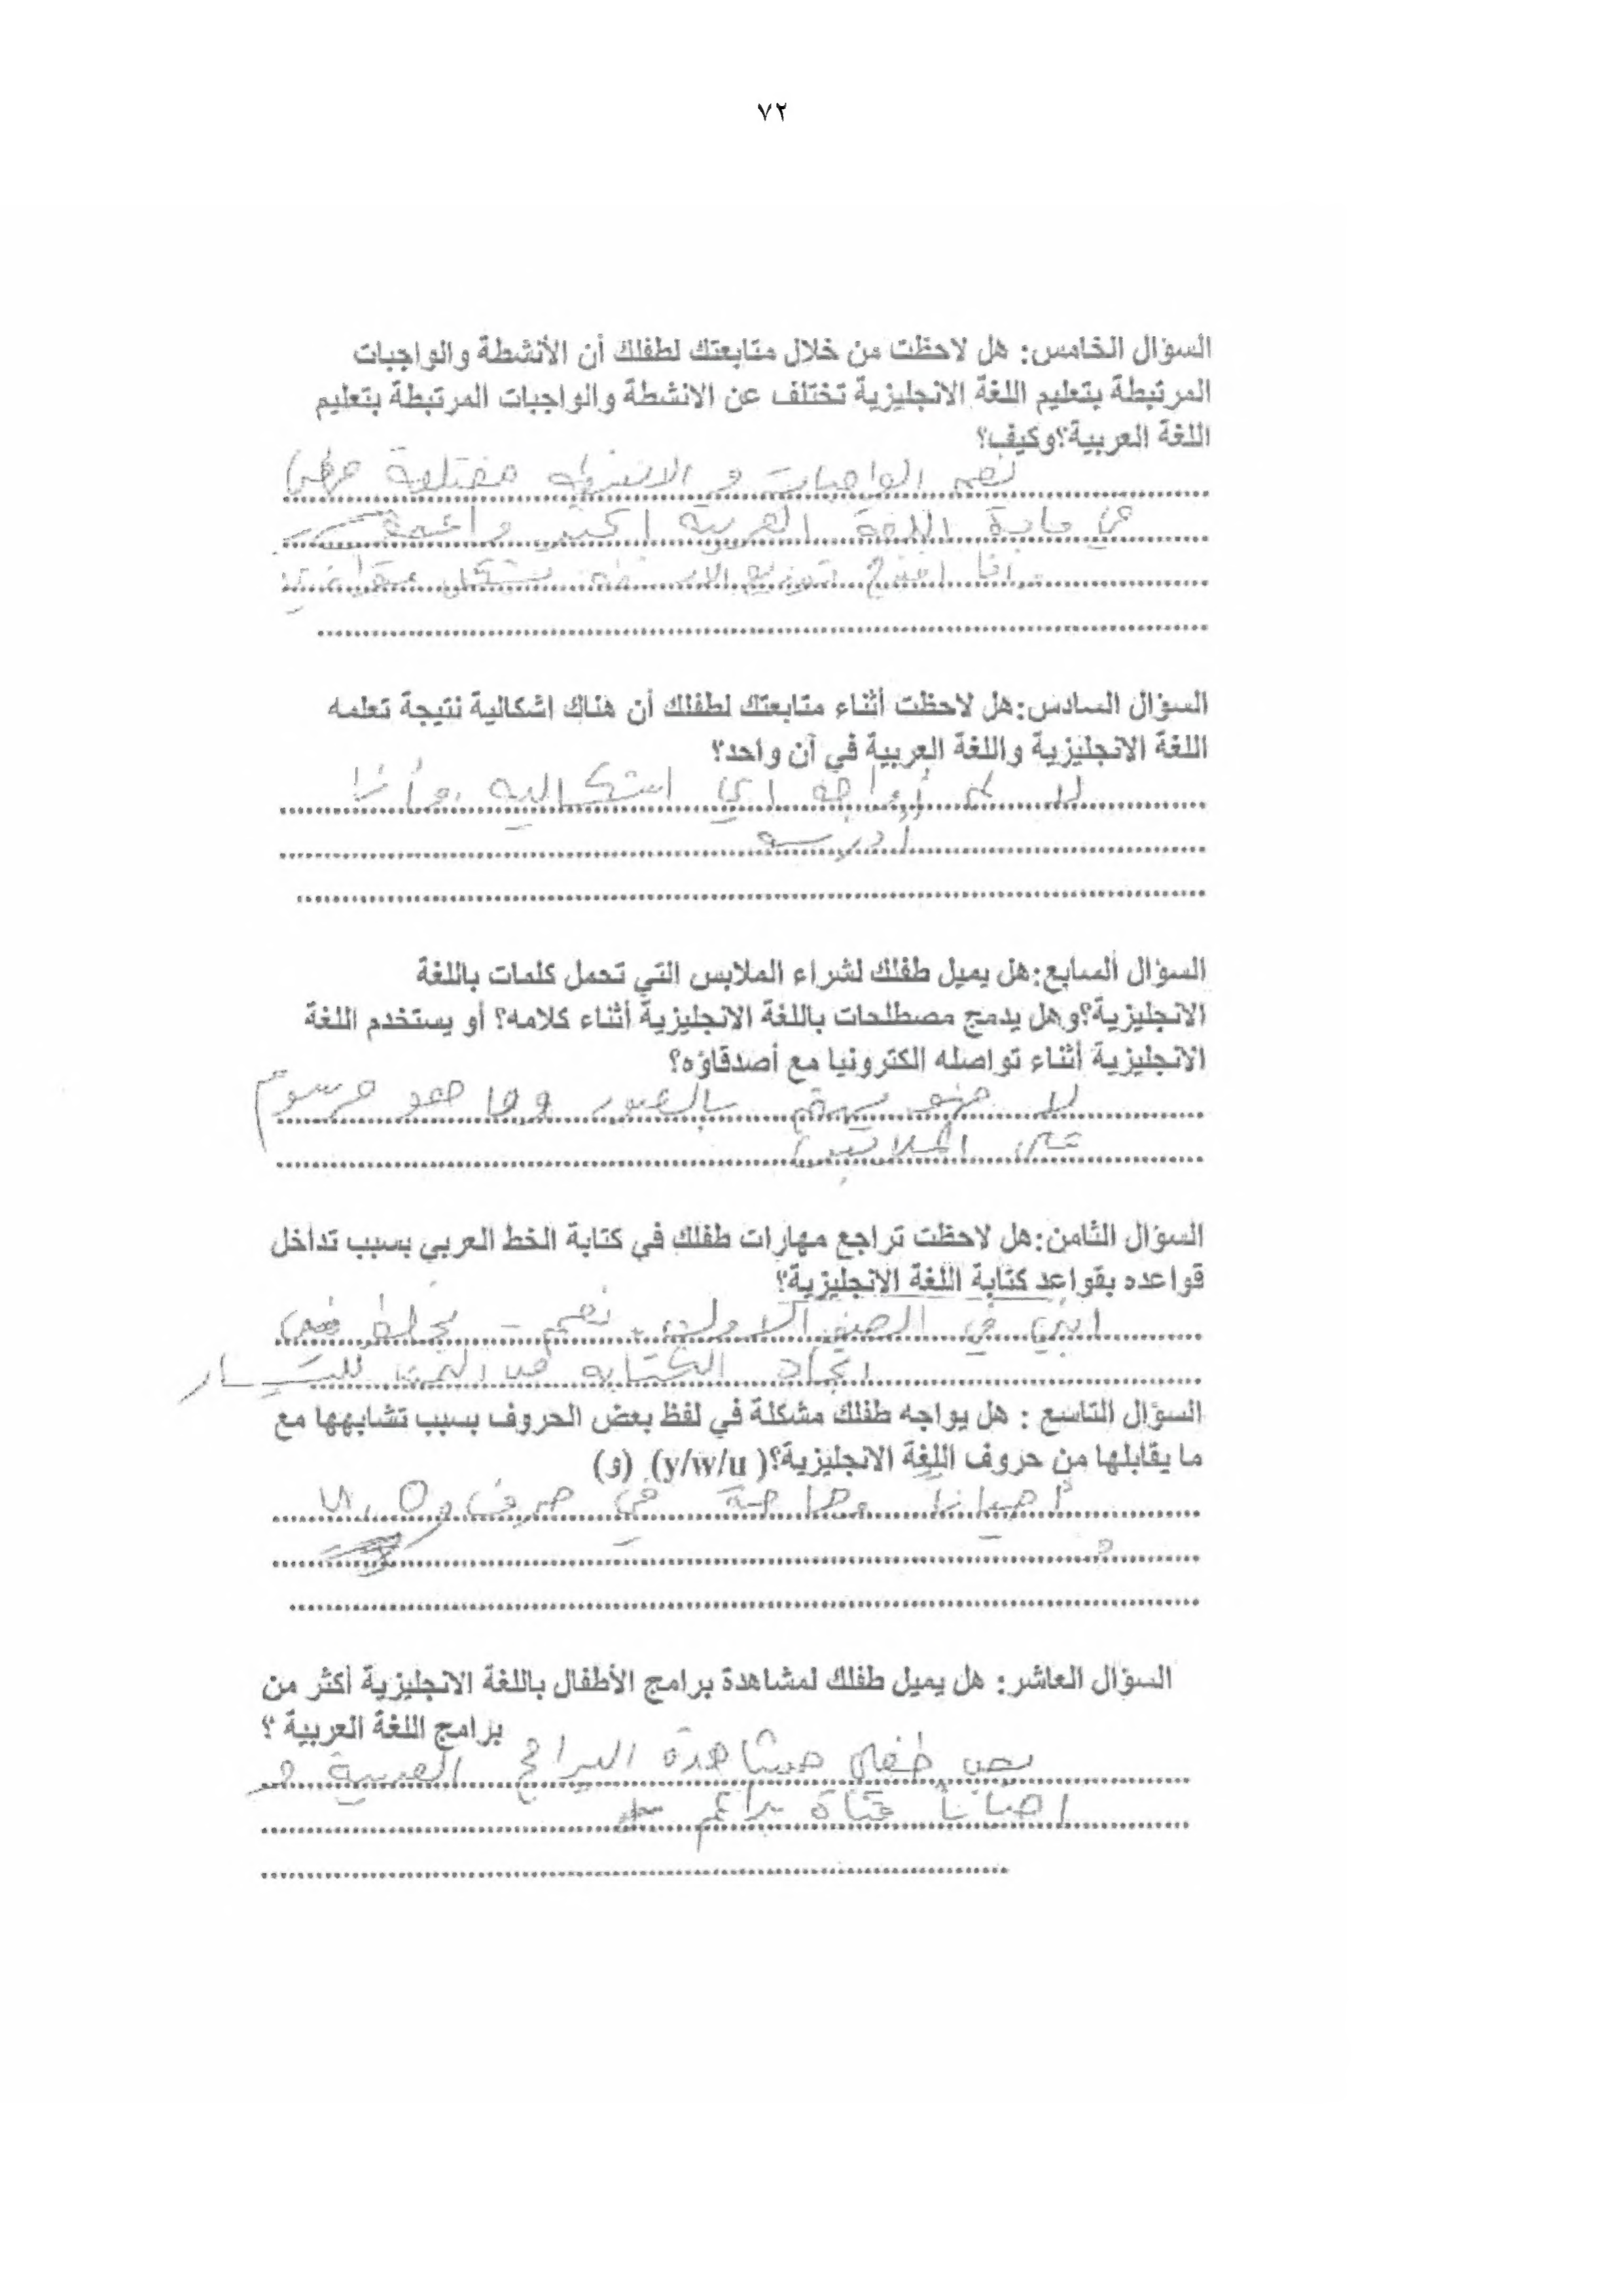 ٧٢
السؤال الخامس: هل لاحظت من خلال متابعتك لطفلك أن الأنشطة والواجبات
المرتبطة بتعليم اللغة الانجليزية تختلف عن الانشطة والواجبات المرتبطة بتعليم
اللغة العربية؟وكيف؟
نعم الواجبات و الانشطه مختلفة فهي
في مادة اللغة العربية اكثر
انا توزيع بشكل
السؤال السادس:هل لاحظت أثناء متابعتك لطفلك أن هناك اشكالية نتيجة تعلمه
اللغة الانجليزية واللغة العربية في آن واحد؟
لا لم أواجه اي اشكاليه وأنا
أدرسه
السؤال السابع:هل يميل طفلك لشراء الملابس التي تحمل كلمات باللغة
الانجليزية؟وهل يدمج مصطلحات باللغة الانجليزية أثناء كلامه؟ أو يستخدم اللغة
الانجليزية أثناء تواصله الكترونيا مع أصدقاؤه؟
لا فهو يهتم بالصور وما هو مرسوم
على الملابس
السؤال الثامن:هل لاحظت تراجع مهارات طفلك في كتابة الخط العربي بسبب تداخل
قواعده بقواعد كتابة اللغة الانجليزية؟
ابني في الصف الاول نعم - يخلط في
اتجاه الكتابه من اليمين لليسار
السؤال التاسع : هل يواجه طفلك مشكلة في لفظ بعض الحروف بسبب تشابهها مع
ما يقابلها من حروف اللغة الانجليزية؟( y/w/u) (و)
أحيانا وخاصة في حرف و O, u
السؤال العاشر: هل يميل طفلك لمشاهدة برامج الأطفال باللغة الانجليزية أكثر من
برامج اللغة العربية ؟
يحب طفلي مشاهدة البرامج العربية و
احياناً قناة براعم